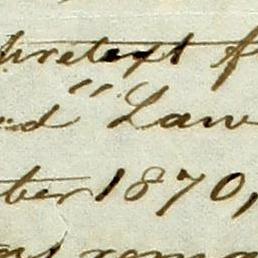 pretext f
ed" Law
ber 1870,